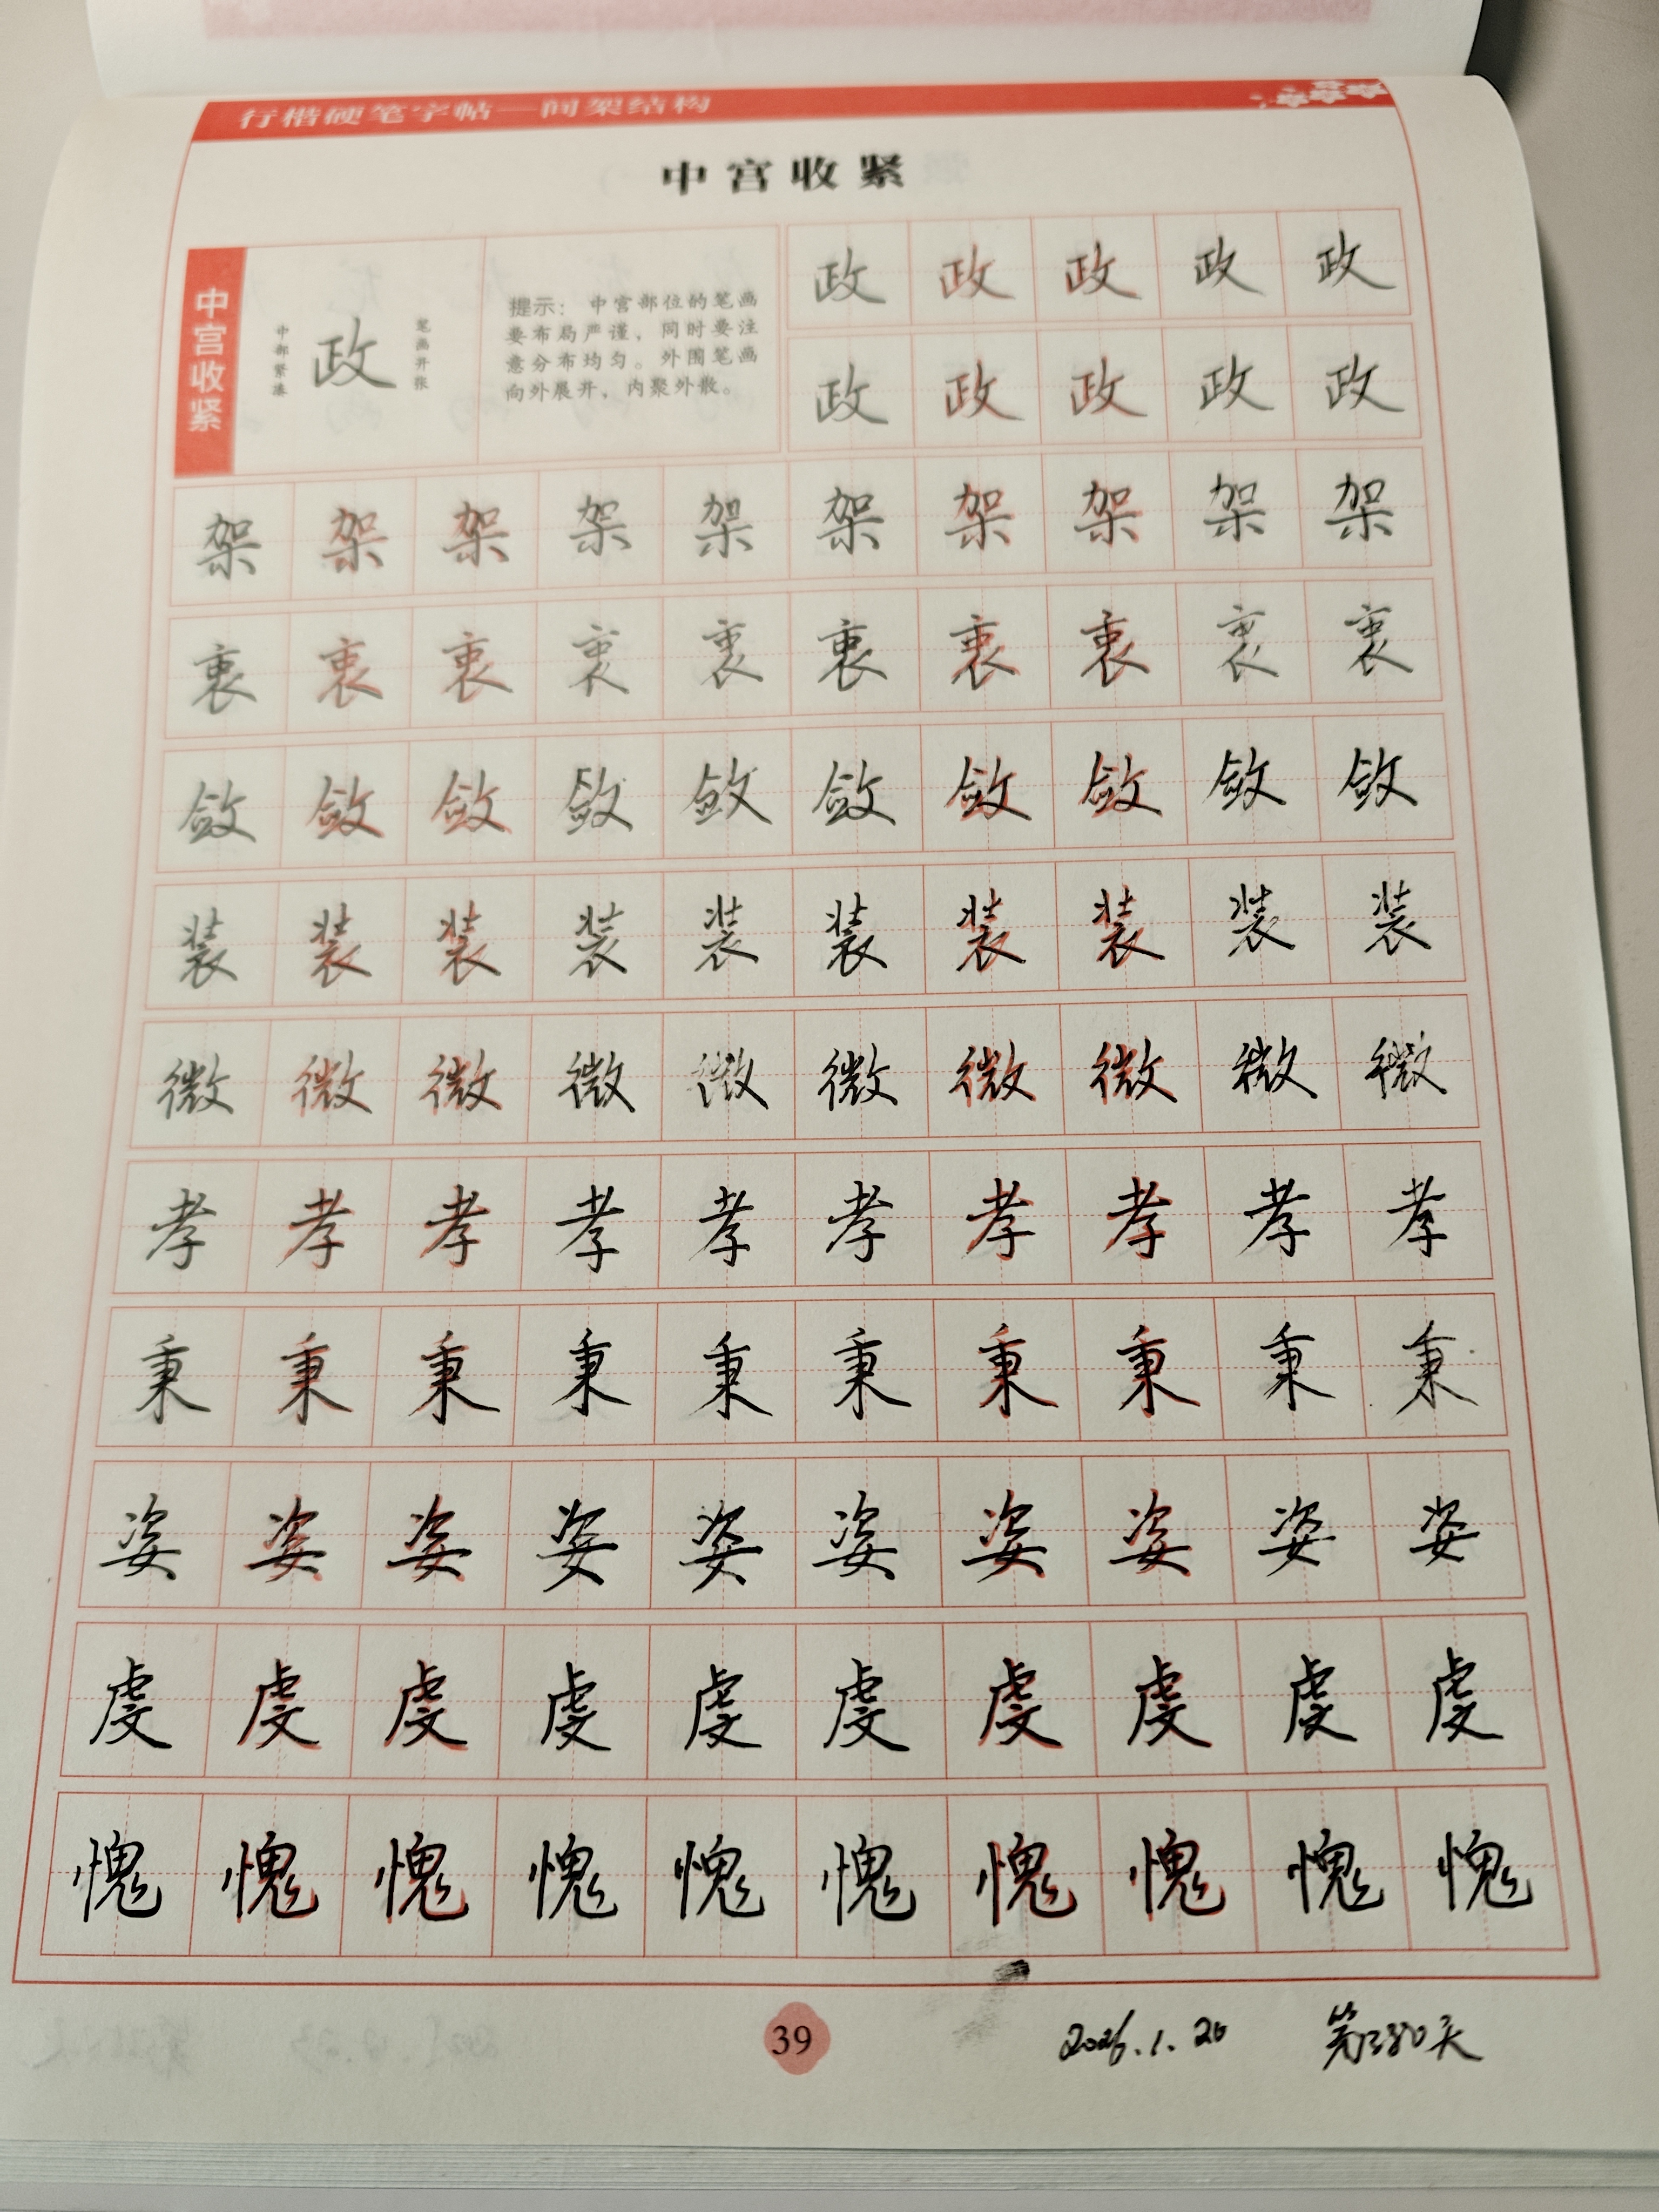 行楷硬笔字帖—间架结构
中宫收紧
中宫收紧
中部紧凑
政
笔画开张
提示：中宫部位的笔画
要布局严谨，同时要注
意分布均匀。外围笔画
向外展开，内聚外散。
政政政政政
政政政政政
架架架架架架架架架架
衷衷衷衷衷衷衷衷衷衷
敛敛敛敛敛敛敛敛敛敛
装装装装装装装装装装
微微微微微微微微微微
孝孝孝孝孝孝孝孝孝孝
秉秉秉秉秉秉秉秉秉秉
姿姿姿姿姿姿姿姿姿姿
虔虔虔虔虔虔虔虔虔虔
愧愧愧愧愧愧愧愧愧愧
39
2026.1.20 第380天